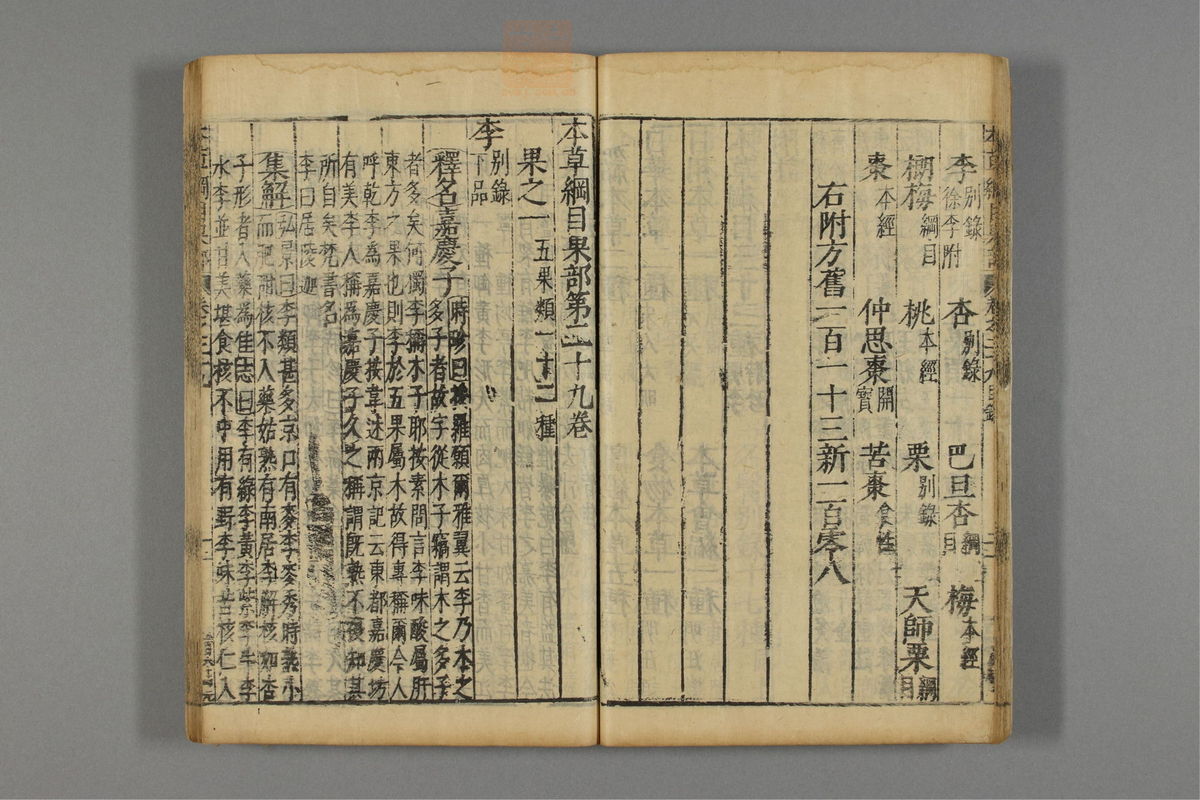 李別錄徐李附 杏別錄 巴旦杏綱目 梅本經
榔梅綱目 桃本經 栗別錄 天師栗綱目
棗本經 仲思棗開寶 苦棗食性
右附方舊一百一十三新二百零八
本草綱目果部第二十九卷
果之一五果類一十二種
李別錄下品
釋名嘉慶子時珍曰按羅願爾雅翼云李乃木之多子者故字從木子竊謂木之多子
者多矣何獨李稱木子耶按素問言李味酸屬肝
東方之果也則李於五果屬木故得專稱爾今人
呼乾李為嘉慶子按韋述兩京記云東都嘉慶坊
有美李人稱為嘉慶子久之稱謂既熟不復知其
所自矣梵書名
李曰居陵迦
集解弘景曰李類甚多京口有麥李麥秀時熟小而肥甜核不入藥姑熟有南居李解核如杏
子形者入藥為佳志曰李有綠李黃李紫李牛李
水李並甘美堪食核不中用有野李味苦核仁入